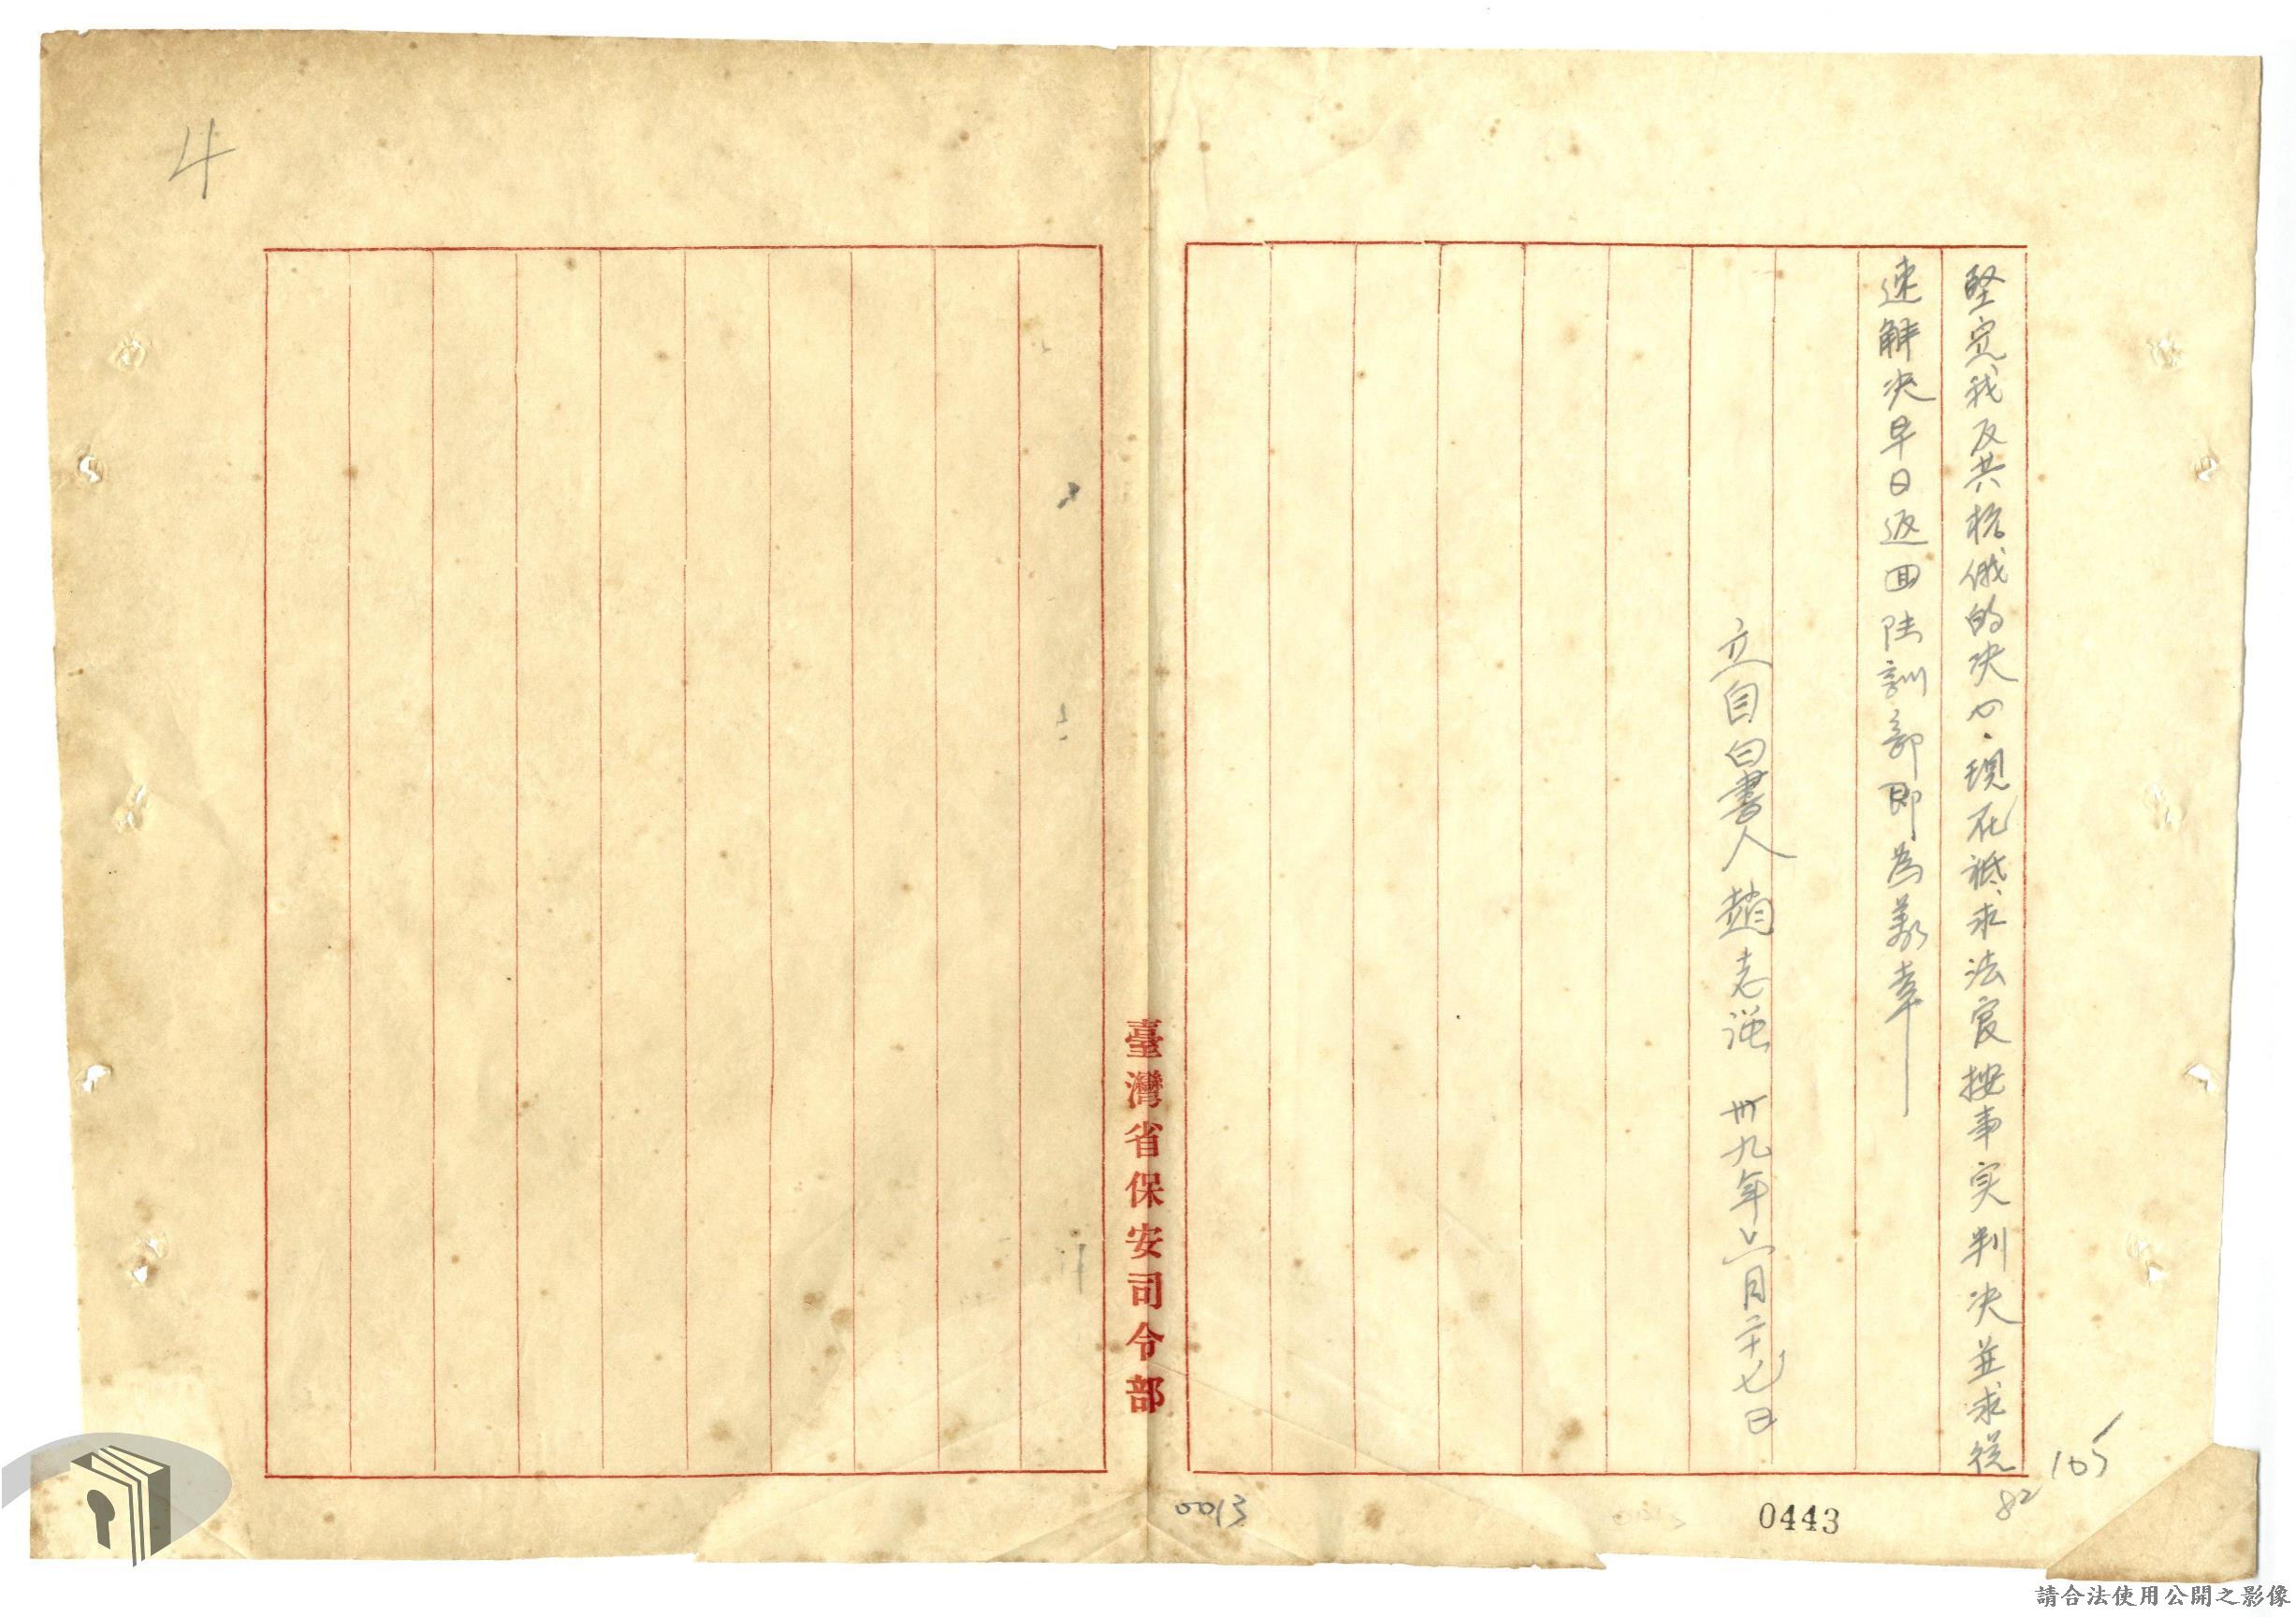 堅定我反共抗俄的决心．現在祗求法官按事实判决並求從
速解决早日返回陆訓部即為義幸
立自白書人趙志强 卅九年六月二十七日
臺灣省保安司令部
4
0013
0443
82
105
請合法使用公開之影像